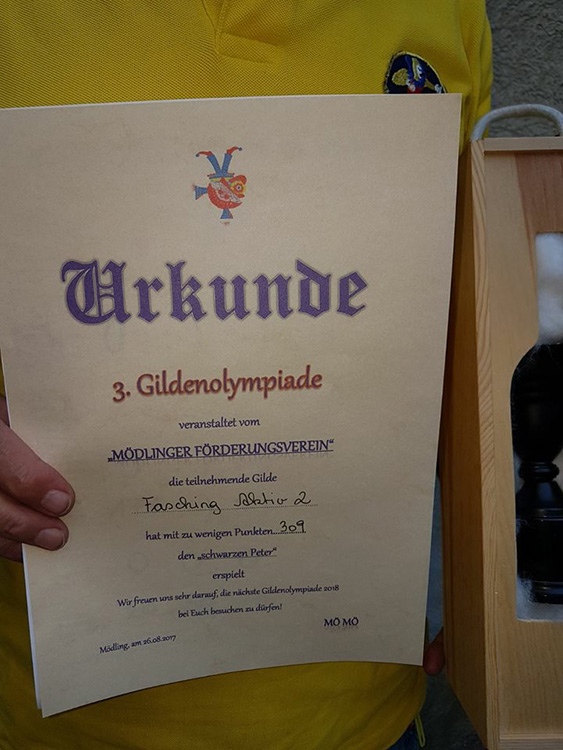 Urkunde
3. Gildenolympiade
veranstaltet vom
„MÖDLINGER FÖRDERUNGSVEREIN“
die teilnehmende Gilde
Fasching Aktiv 2
hat mit zu wenigen Punkten...309
den „schwarzen Peter“
erspielt
Wir freuen uns sehr darauf, die nächste Gildenolympiade 2018
bei Euch besuchen zu dürfen!
MÖ MÖ
Mödling, am 26.08.2017